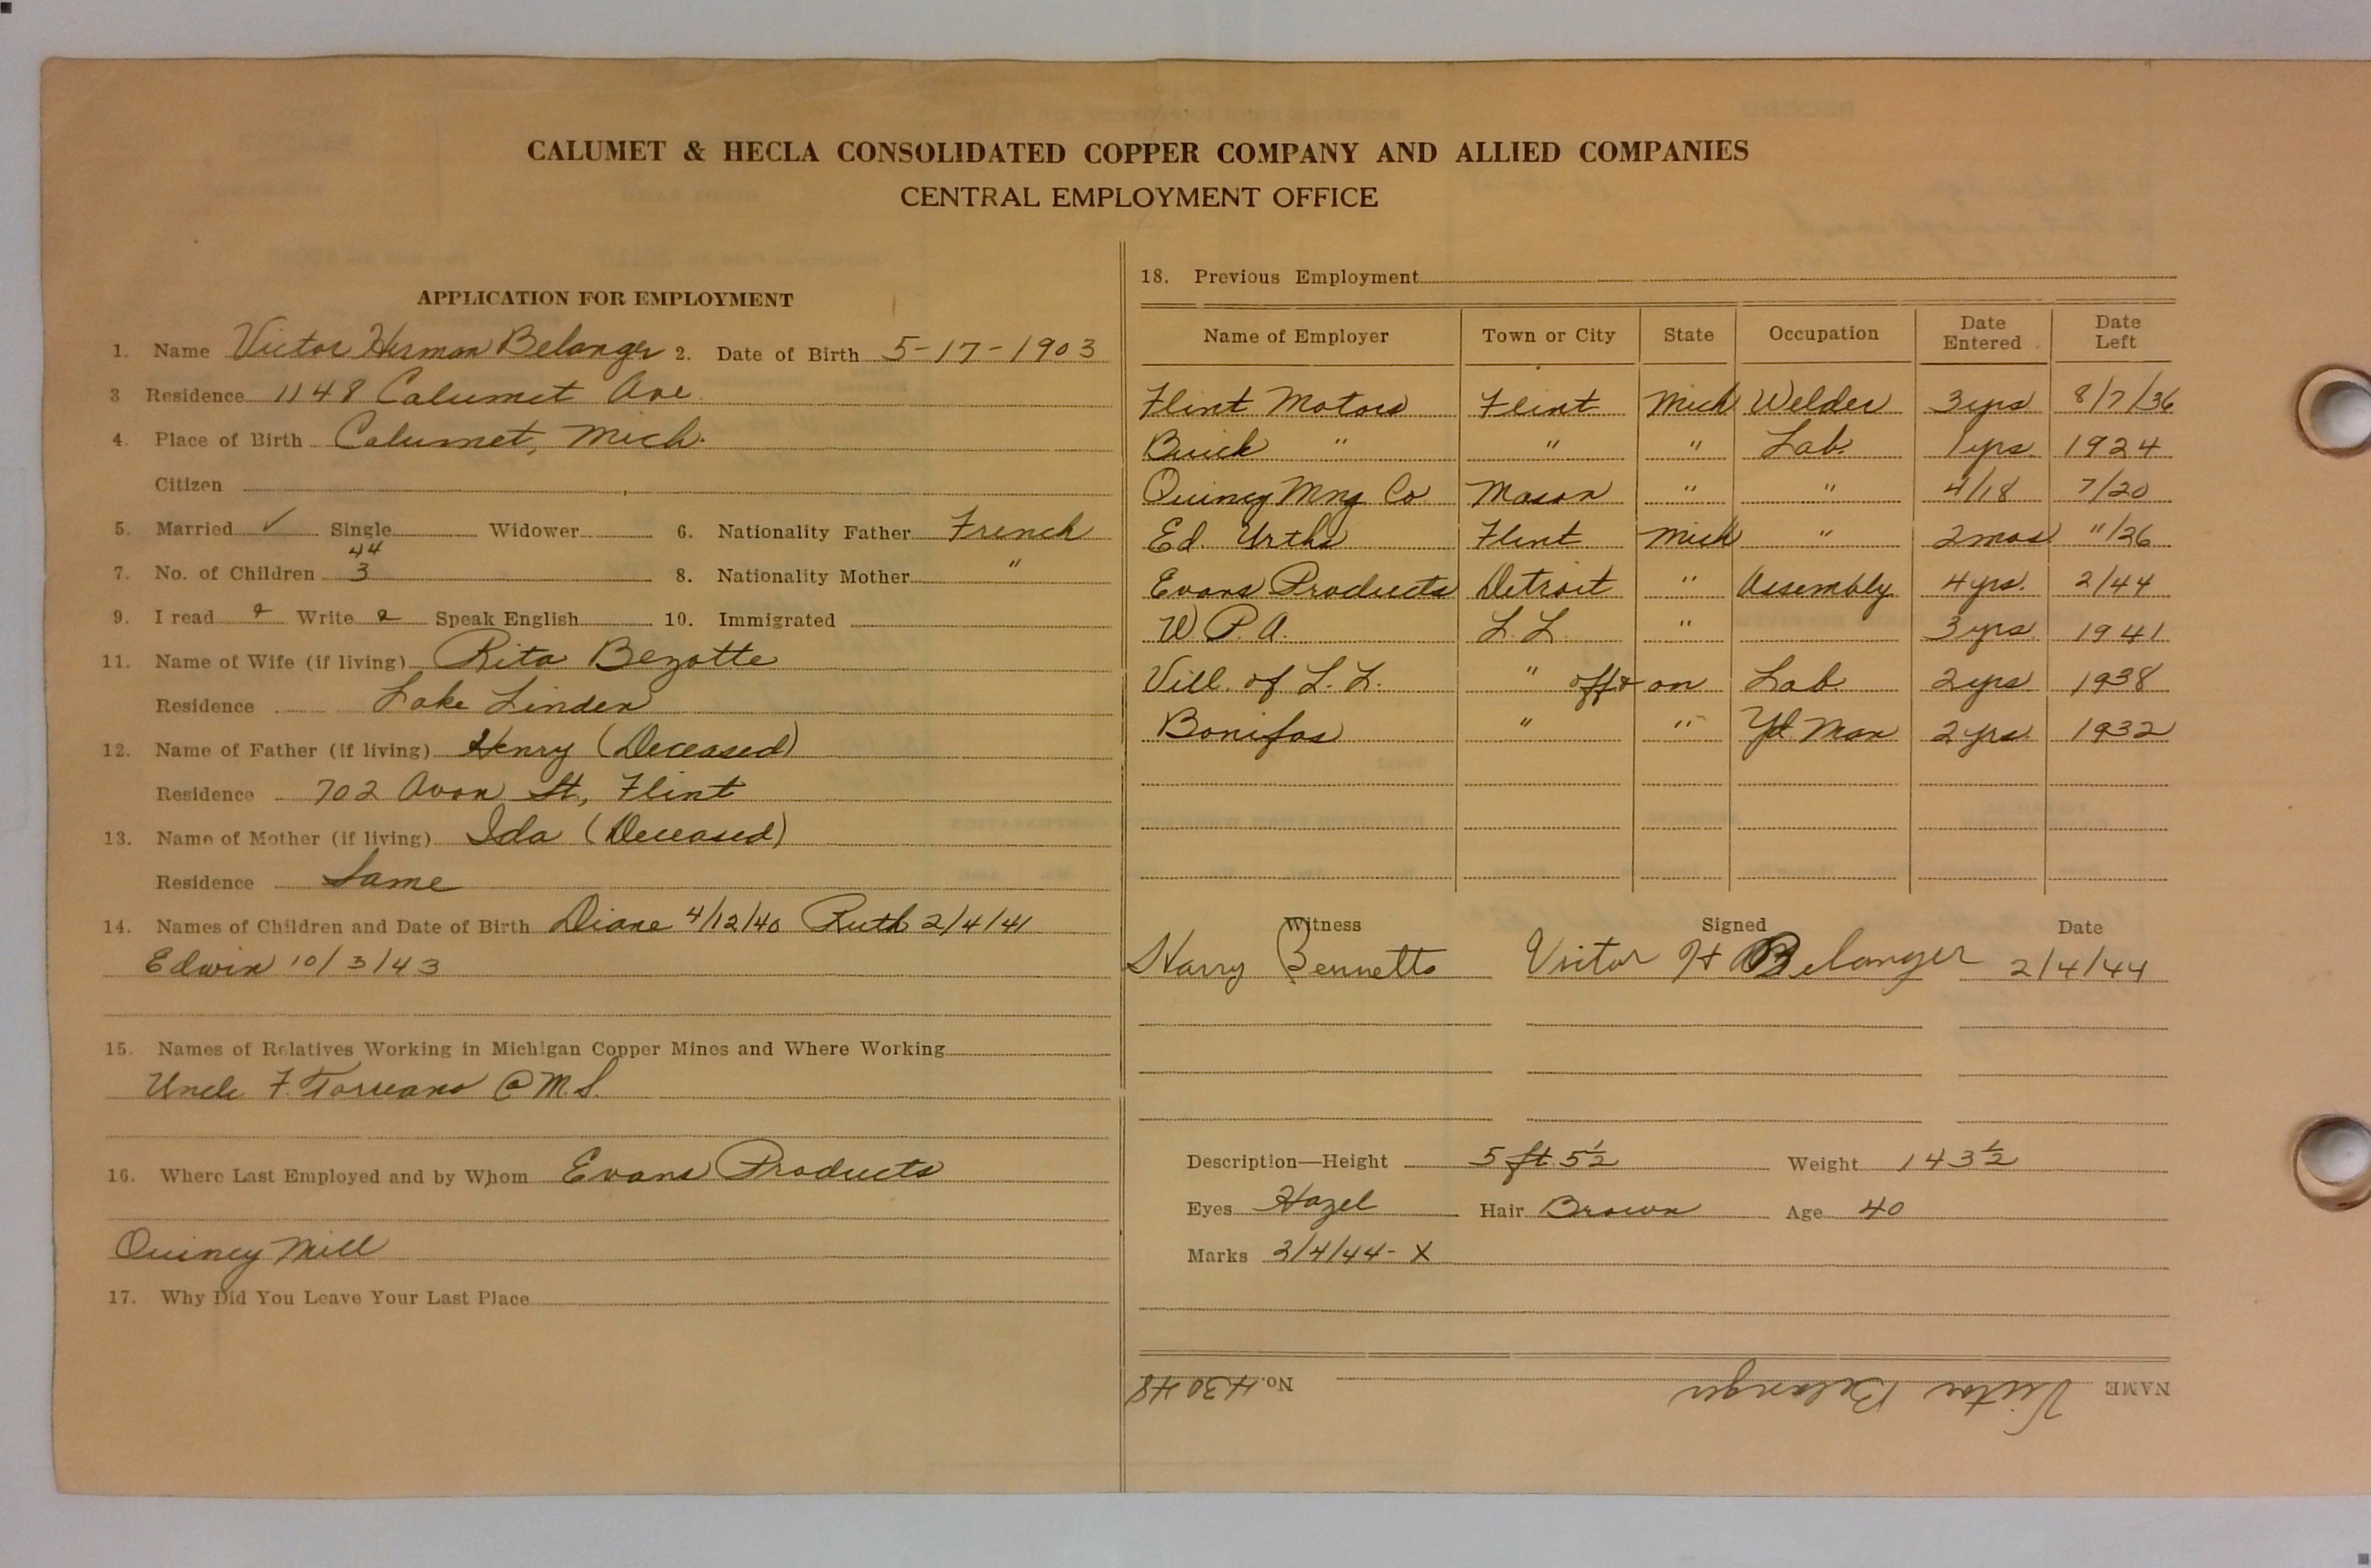 CALUMET & HECLA CONSOLIDATED COPPER COMPANY AND ALLIED COMPANIES
CENTRAL EMPLOYMENT OFFICE
APPLICATION FOR EMPLOYMENT
1. Name Victor Herman Belanger 2. Date of Birth 5-17-1903
3 Residence 1148 Calumet Ave
4. Place of Birth Calumet, Mich.
Citizen
5. Married ✓ Single Widower 6. Nationality Father French
44
7. No. of Children 3 8. Nationality Mother "
9. I read Write Speak English 10. Immigrated
11. Name of Wife (if living) Rita Bezotte
Residence Lake Linden
12. Name of Father (if living) Henry (Deceased)
Residence 702 Avon St, Flint
13. Name of Mother (if living) Ida (Deceased)
Residence Same
14. Names of Children and Date of Birth Diane 4/12/40 Ruth 2/4/41
Edwin 10/3/43
15. Names of Relatives Working in Michigan Copper Mines and Where Working
Uncle F. Torreano C M.S.
16. Where Last Employed and by Whom Evans Products
Quincy Mill
17. Why Did You Leave Your Last Place
18. Previous Employment
Name of Employer Town or City State Occupation Date Entered Date Left
Flint Motors Flint Mich Welder 3 yrs 8/7/36
Buick " " " Lab. 1 yrs. 1924
Quincy Mng Co Mason " " 4/18 7/20
Ed. Flint Mich " 2 mos "/26
Evans Products Detroit " Assembly 4 yrs. 2/44
W.P.A. L.L. " 3 yrs 1941
Vill. of L.L. " off & on Lab. 2 yrs 1938
Bonifas " " Yd Man 2 yrs 1932
Witness Signed Date
Harry Bennetts Victor H Belanger 2/4/44
Description—Height 5 ft. 5½ Weight 143½
Eyes Hazel Hair Brown Age 40
Marks 2/4/44- X
NAME Victor Belanger No. 43048